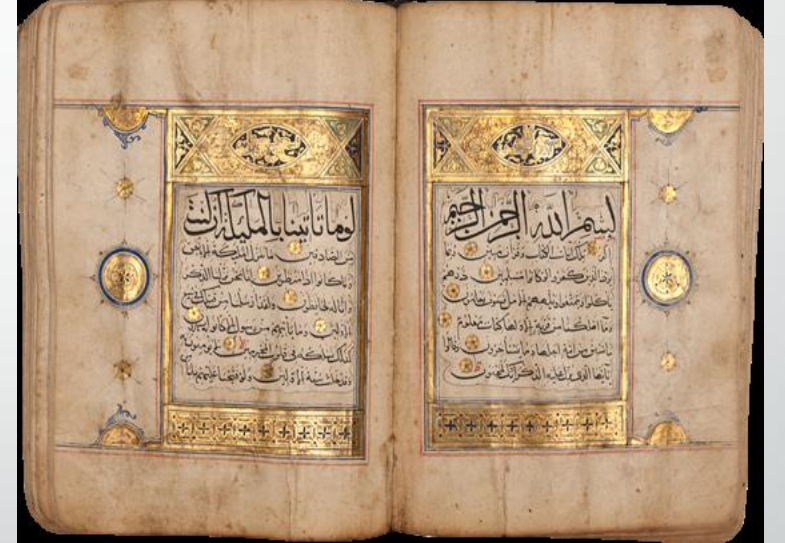 بسم الله الرحمن الرحيم
الر تلك ايات الكتاب وقران مبين ربما
يود الذين كفروا لو كانوا مسلمين ذرهم
ياكلوا ويتمتعوا ويلههم الامل فسوف يعلمون
وما اهلكنا من قرية الا ولها كتاب معلوم
ما تسبق من امة اجلها وما يستاخرون وقالوا
يايها الذي نزل عليه الذكر انك لمجنون
لوما تاتينا بالملئكة ان كنت
من الصادقين ما ننزل الملئكة الا بالحق
وما كانوا اذا منظرين انا نحن نزلنا الذكر
وانا له لحافظون ولقد ارسلنا من قبلك في شيع
الاولين وما ياتيهم من رسول الا كانوا به
كذلك نسلكه في قلوب المجرمين لا يومنون به
وقد خلت سنة الاولين ولو فتحنا عليهم بابا